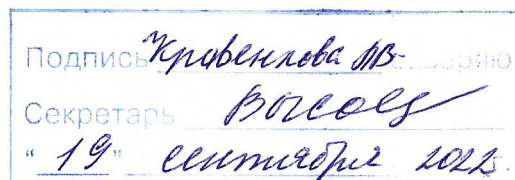 Подпись Кравенкова
Секретарь
“ 19 ” сентября 2022